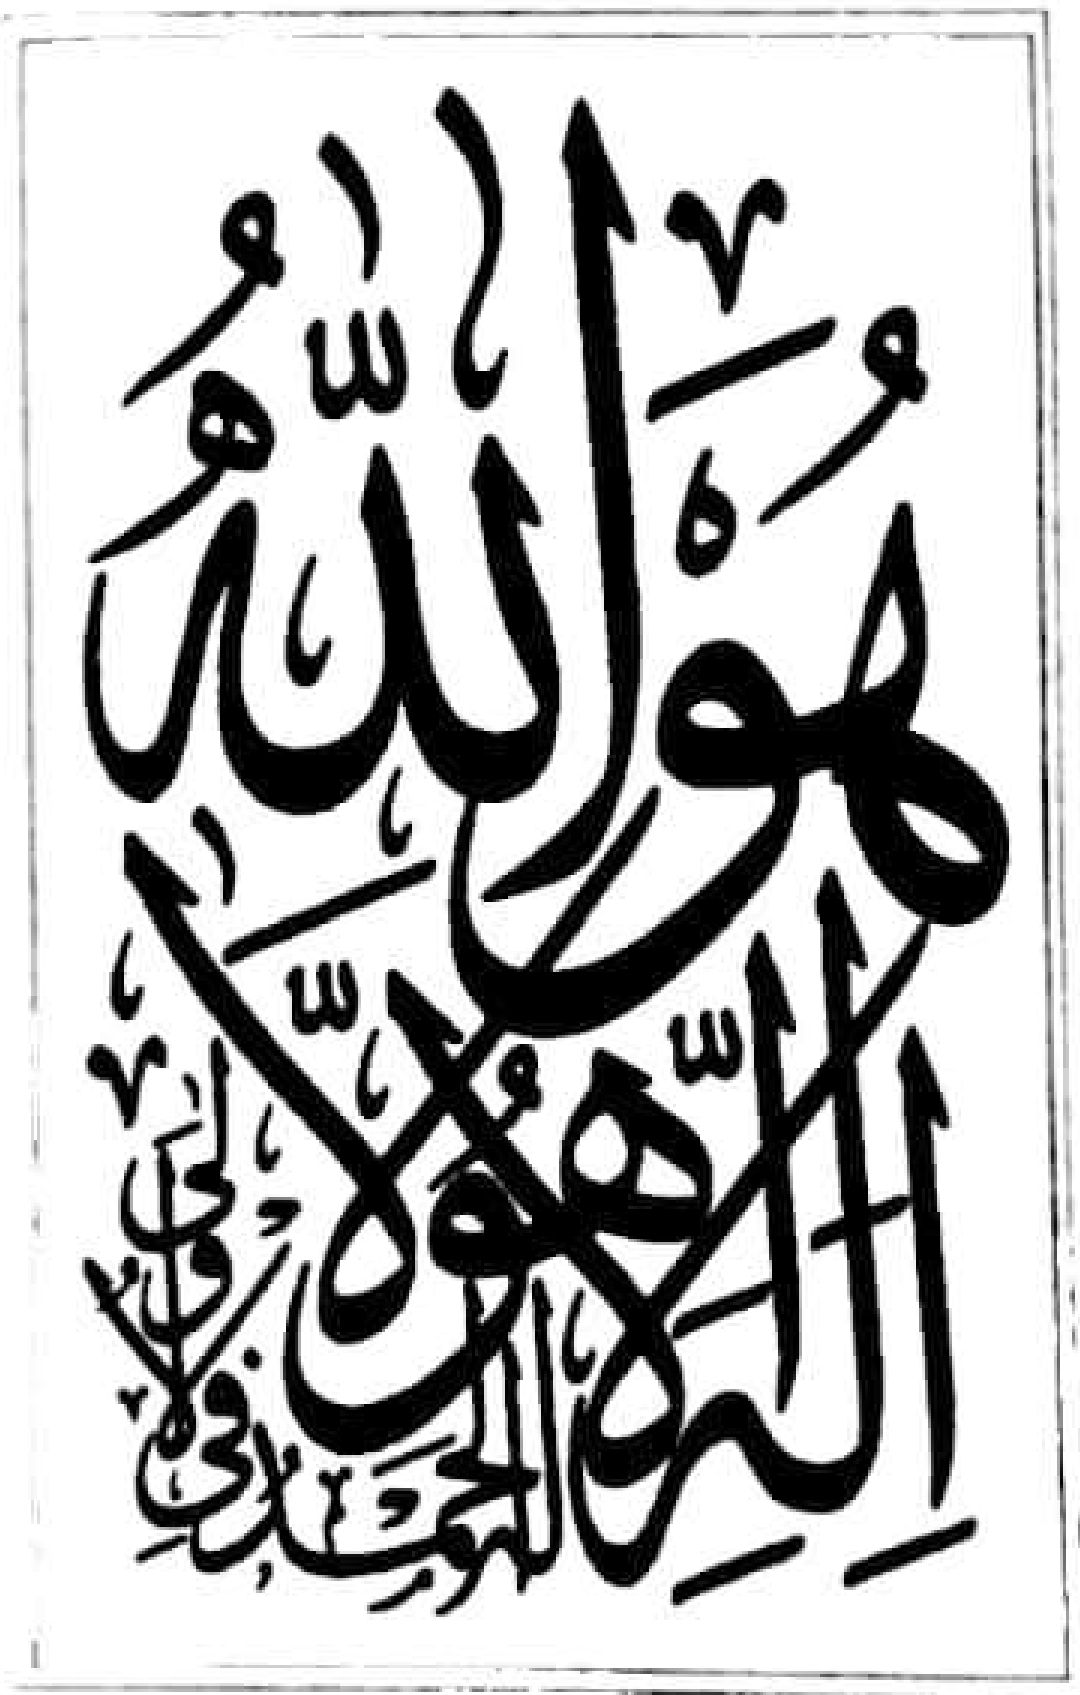 هُوَ اللّٰهُ
لَا إِلٰهَ إِلَّا هُوَ
لَهُ الْحَمْدُ فِي الْأُولَىٰ